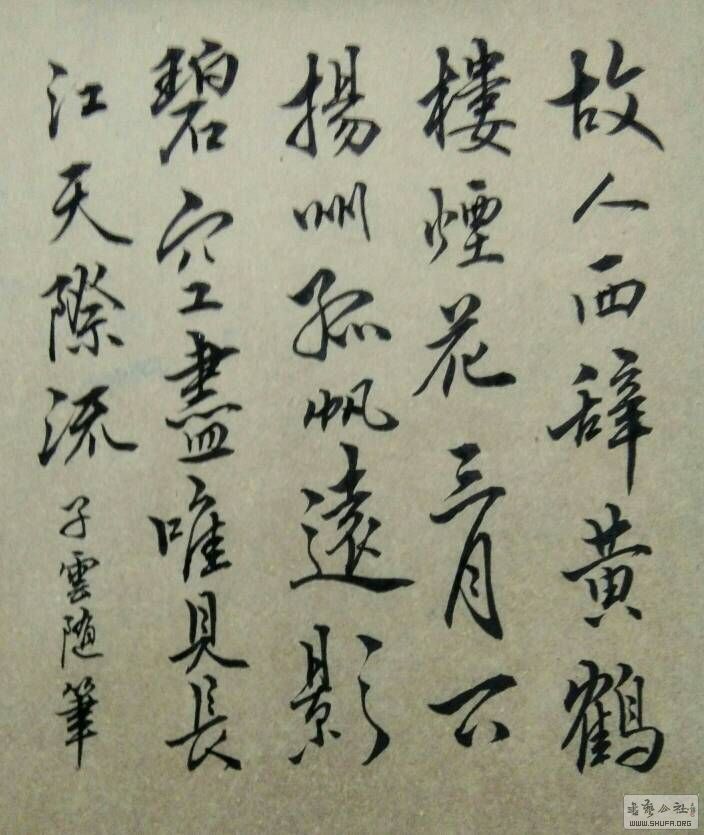 故人西辭黄鶴
樓煙花三月下
揚州孤帆遠影
碧空盡唯見長
江天際流 子雲随筆
WWW.SHUFA.ORG